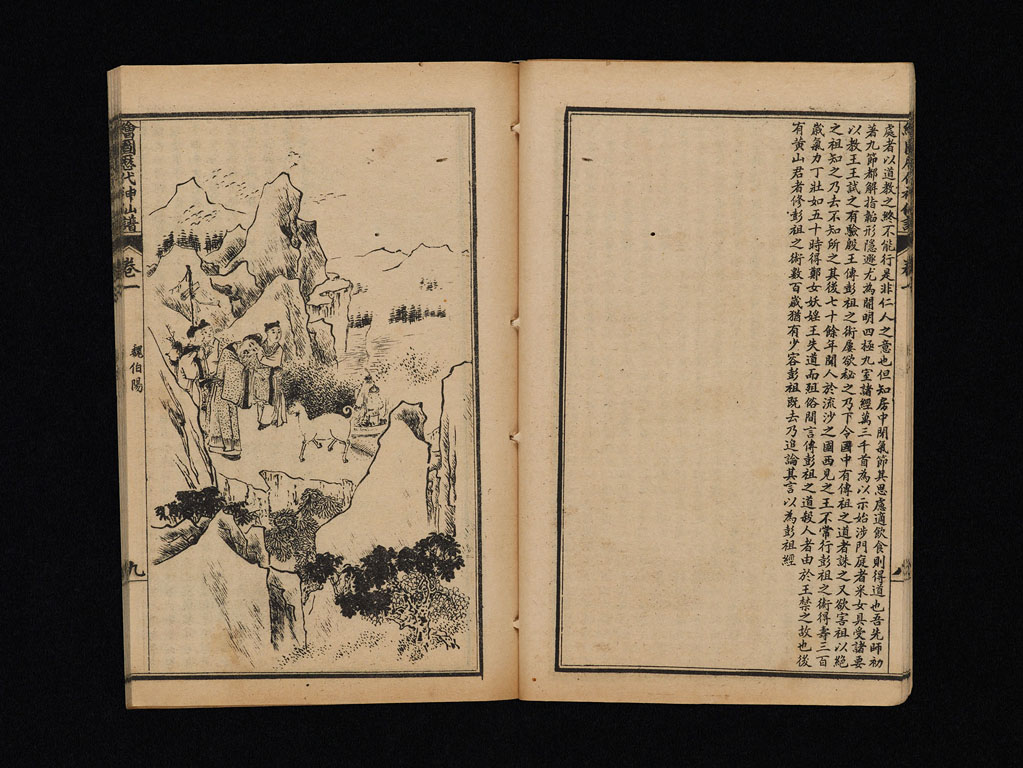 處者以道教之終不能行是非仁人之意也但知房中閉氣節其思慮適飲食則得道也吾先師初
著九節都解指韜形隱遯尤為開明四極九室諸經萬三千首為以示始涉門庭者采女具受諸要
以教王王試之有驗殷王傳彭祖之術屢欲秘之乃下令國中有傳祖之道者誅之又欲害祖以絕
之祖知之乃去不知所之其後七十餘年聞人於流沙之國西見之王不常行彭祖之術得壽三百
歲氣力丁壯如五十時得鄭女妖婬王失道而殂俗間言傳彭祖之道殺人者由於王禁之故也後
有黃山君者修彭祖之術數百歲猶有少容彭祖既去乃追論其言以為彭祖經
繪圖歷代神仙譜
卷一
魏伯陽
九